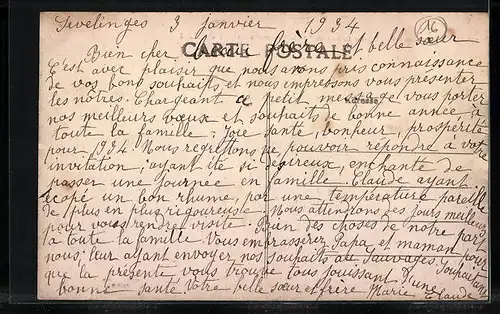 Sevelinges 3 janvier 1934
16
CARTE POSTALE
Bien cher frère et belle sœur
C'est avec plaisir que nous avons pris connaissance
de vos bons souhaits, et nous impressons vous presenter
les notres. Chargeant ce petit message de vous porter
nos meilleurs vœux et souhaits de bonne année à
toute la famille, joie santé, bonheur, prospérité
pour 1934. Nous regrettons ne pouvoir repondre à votre
invitation, ayant été si desireux, enchanté de
passer une journée en famille Claude ayant
un bon rhume, par une température pareille
de plus en plus rigoureuse. Nous attendrons des jours meilleurs
pour vous rendre visite. Bien des choses de notre part
à toute la famille. Vous embrasserez Papa et maman pour
nous, leur ayant envoyer nos souhaits au Sauvages. Souhaitant
que la présente vous trouve tous jouissant d'une
bonne santé. Votre belle sœur et frère Marie Claude